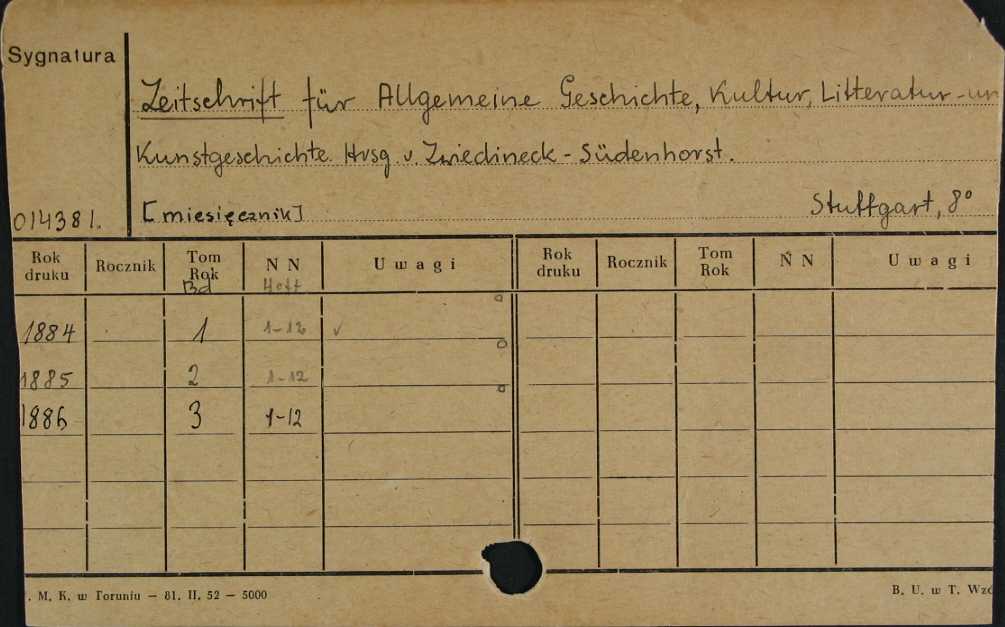 Sygnatura
Zeitschrift für Allgemeine Geschichte, Kultur, Litteratur-un
Kunstgeschichte. Hrsg. v. Zwiedineck-Südenhorst.
014381.
[miesięcznik]
Stuttgart, 8°
Rok druku Rocznik Tom Rok N N Uwagi Rok druku Rocznik Tom Rok N N Uwagi
Bd Heft
1884 1 1-12 v
1885 2 1-12
1886 3 1-12
. M. K. w Toruniu — 81. II. 52 — 5000
B. U. w T. Wzó